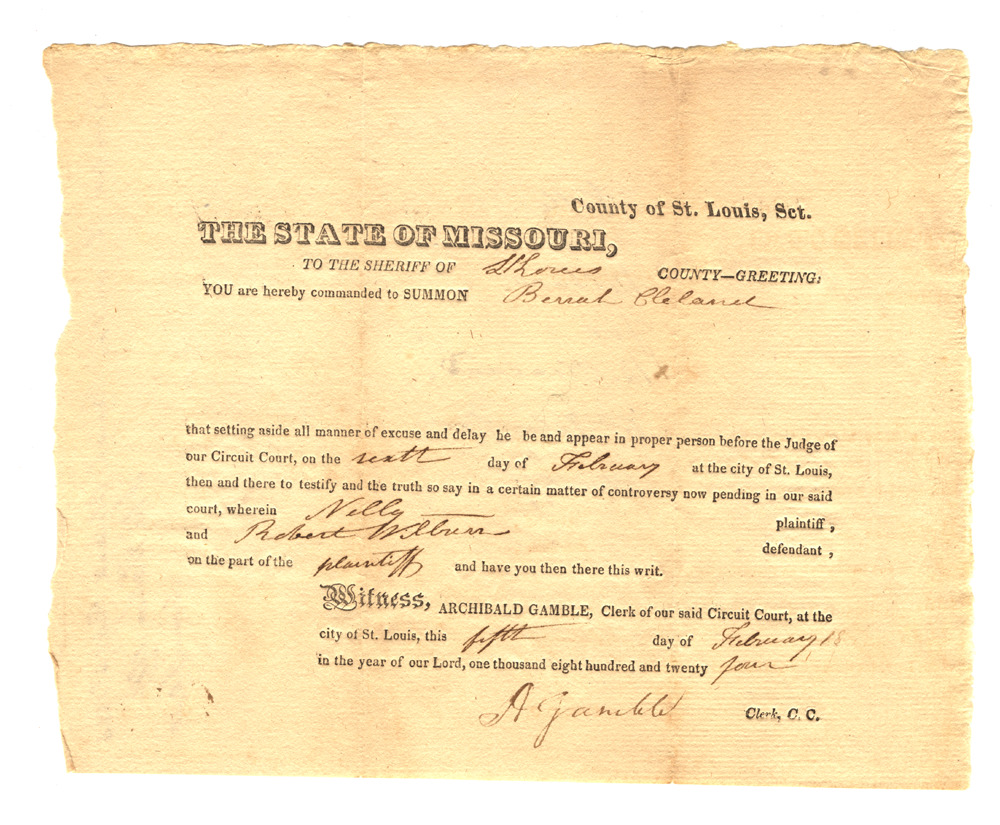 County of St. Louis, Sct.
THE STATE OF MISSOURI,
TO THE SHERIFF OF St Louis COUNTY—GREETING:
YOU are hereby commanded to SUMMON Berrah Cleland
that setting aside all manner of excuse and delay he be and appear in proper person before the Judge of
our Circuit Court, on the sixth day of February at the city of St. Louis,
then and there to testify and the truth so say in a certain matter of controversy now pending in our said
court, wherein Nelly plaintiff,
and Robert Wilburn defendant,
on the part of the plaintiff and have you then there this writ.
Witness, ARCHIBALD GAMBLE, Clerk of our said Circuit Court, at the
city of St. Louis, this fifth day of February 18
in the year of our Lord, one thousand eight hundred and twenty four
A Gamble Clerk, C. C.